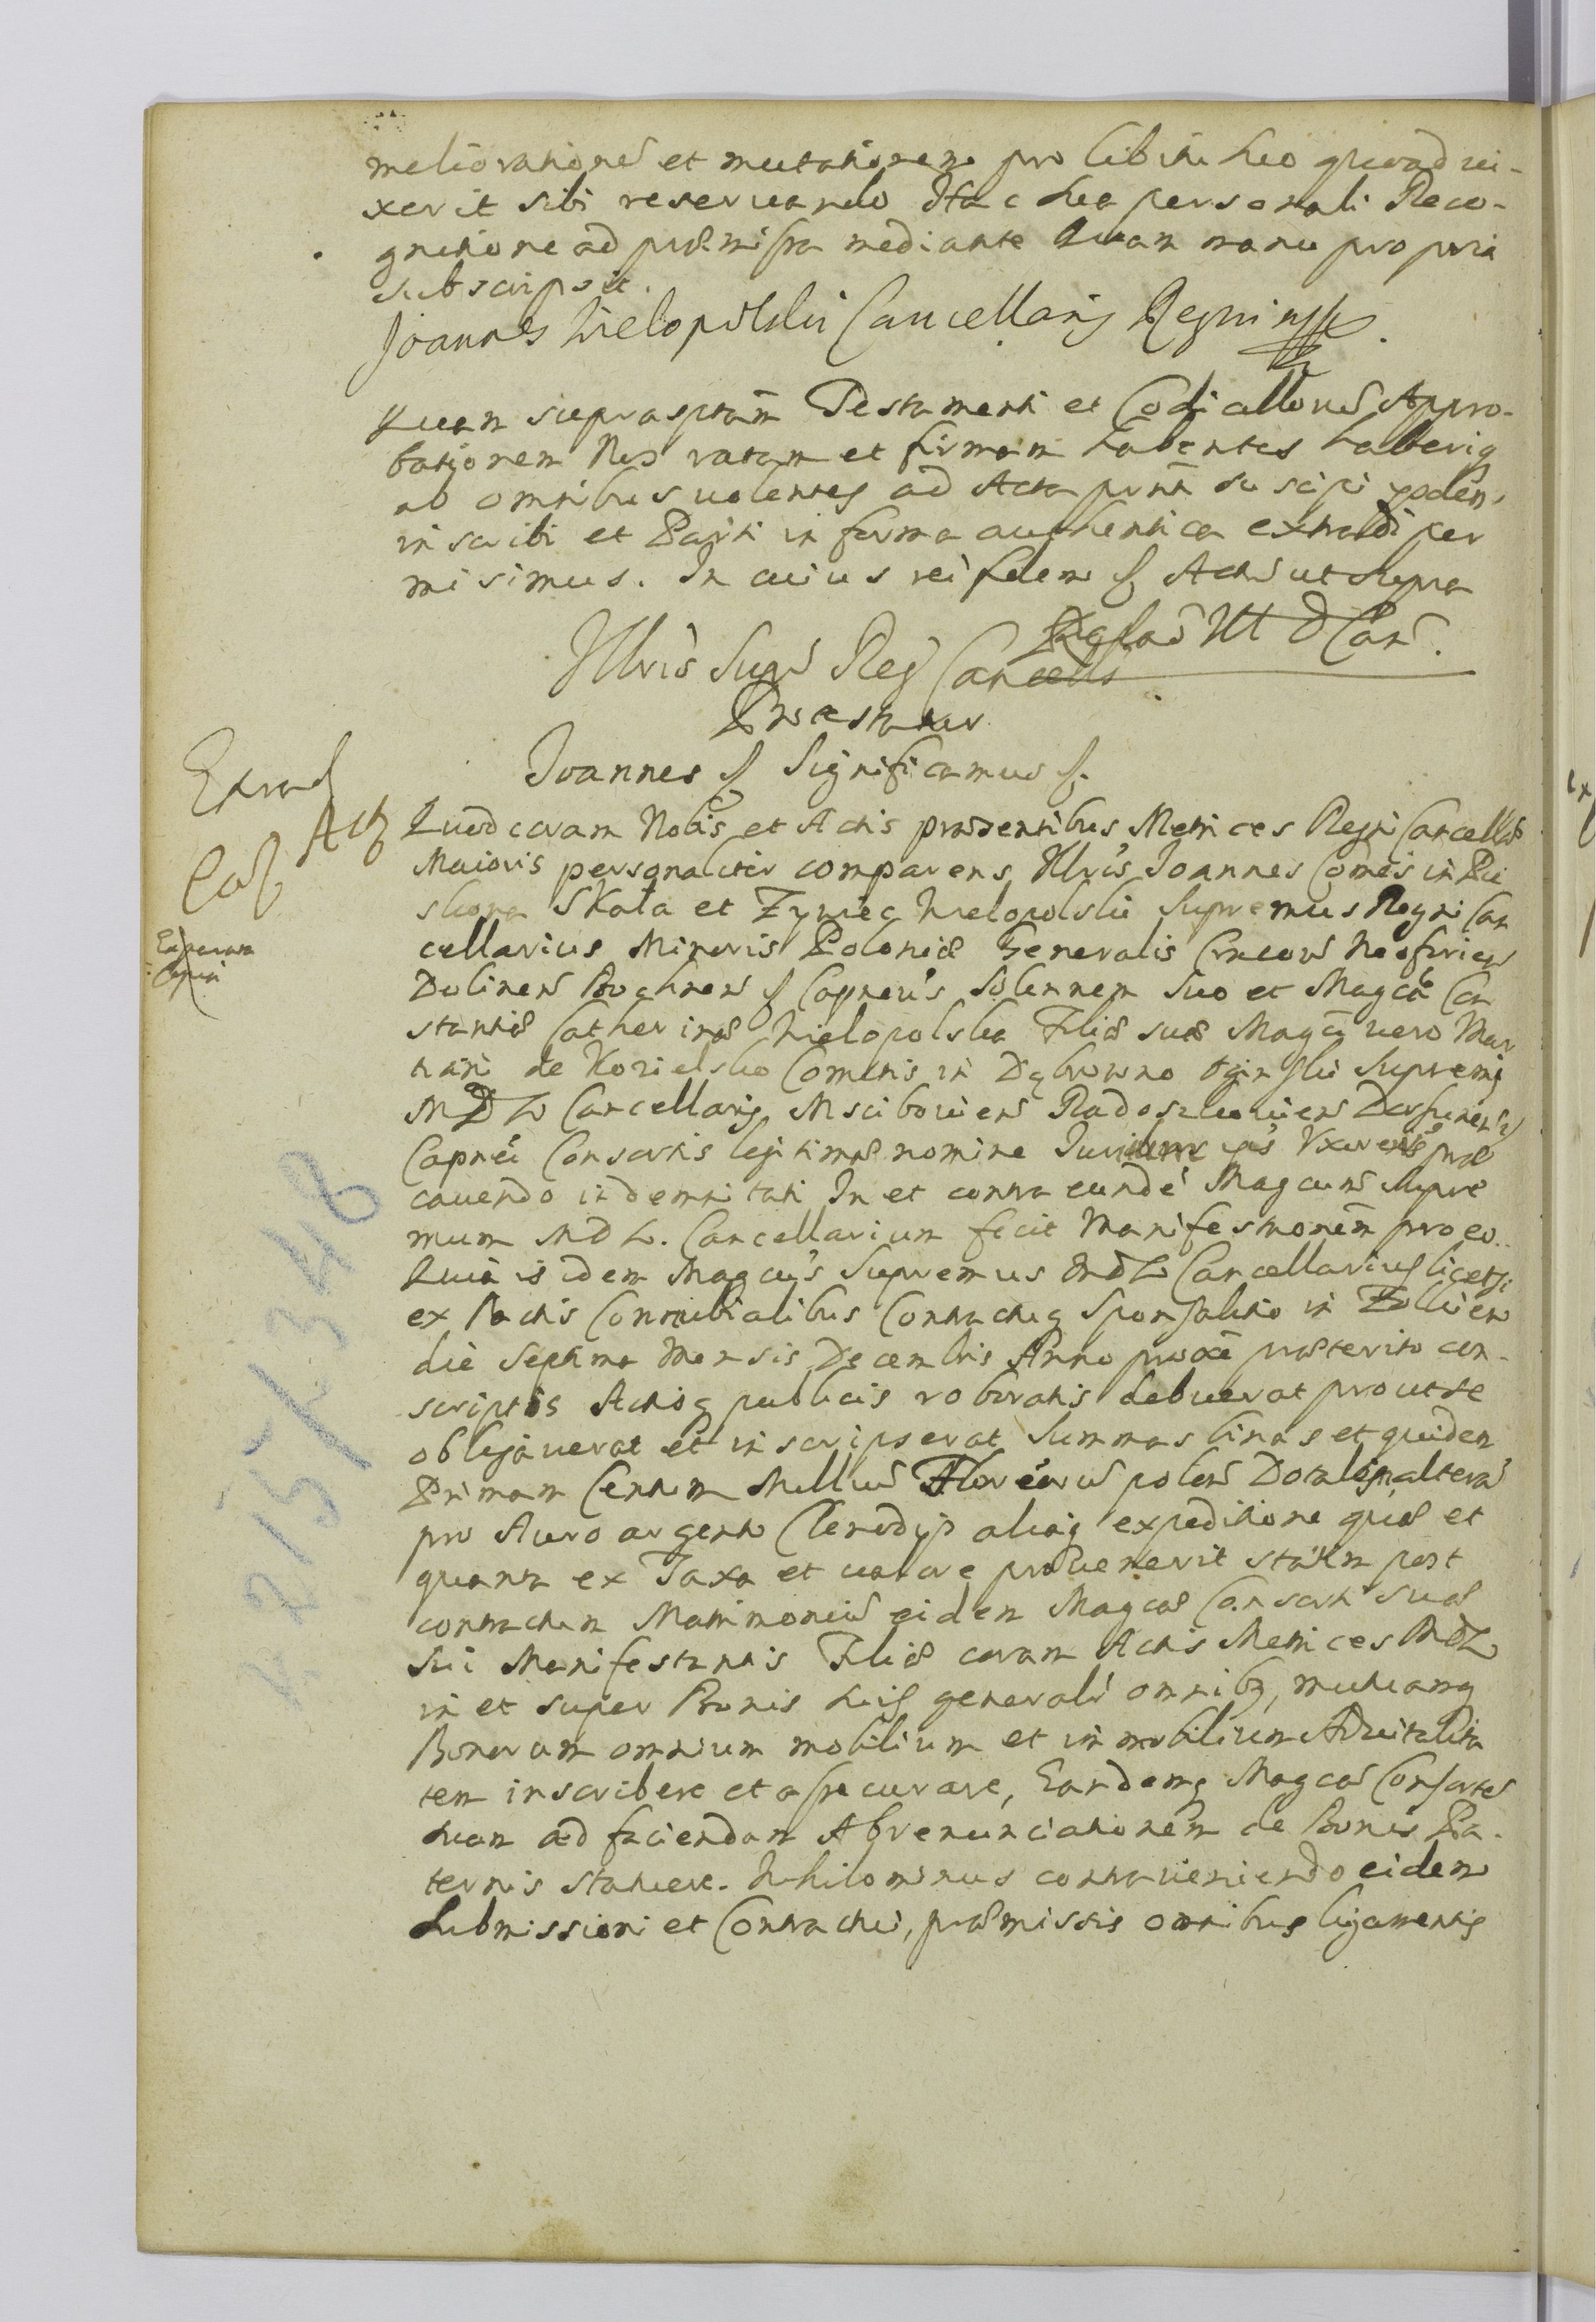 meliorationē et mutationem pro libitu suo quoad vi-
xerit sibi reservando Hac sua personali Reco-
gnitione ad præmissa mediante Quam manu propria
subscripsit.
Joannes Wielopolski Cancellarius Regni mp.
Quam suprascptam Testamenti et Codicillorū Appro-
bationem Nos ratam et firmam habentes haberiq
ab omnibus volentes ad Acta prnta suscipi eodem
inscribi et Parti in forma authentica extradi per
misimus. In cuius rei fidem Actū ut supra
Illris Supr Reg Cancell
Protestatur
Joannes Significamus
Extrad
Act
Quod coram Nobis et Actis præsentibus Metrices Regni Cancellar
Maioris personaliter comparens Illris Joannes Comes in Pie
skowa Skała et Zywiec Wielopolski Supremus Regni Can
cellarius Minoris Poloniæ Generalis Cracov Neoforien
Dolinen Bochnen Capneus Solennem Suo et Magcæ Con
stantiæ Catherinæ Wielopolska Filiæ suæ Magci vero Mar
tiani de Kozielsko Comitis in Dąbrowno Oginski Supremi
M D L Cancellarij Mscibovien Radoszkovien Dorsunen
Capnei Consortis legitimæ nomine Juribus ejus Uxoreis præ
cavendo indemnitati In et contra eundē Magcum Supre
mum M D L. Cancellarium fecit Manifestationem pro eo.
Quia is idem Magcus Supremus M D L Cancellarius licet
ex Pactis Connubialibus Contractuq Sponsalitio in
die Septima Mensis Decembris Anno proxe præterito con-
scriptis Actisq publicis roboratis debuerat prout se
obligaverat et inscripserat Summas binas et quidem
Primam Centum Millium Florenorū polon Dotalem alteram
pro Auro argento Clenodijs aliaq expeditione quæ et
quanta ex Taxa et valore provenerit statim post
contractum Matrimonium eidem Magcæ Consorti Suæ
Sui Manifestantis Filiæ coram Actis Metrices M D L
in et super Bonis suis generalr omnibq, mutuamq
Bonorum omnium mobilium et immobilium Advitalita
tem inscribere et assecurare, Eandemq Magcam Consortem
suam ad faciendam Abrenunciationem de Bonis Pa-
ternis statuere. Nihilominus contraveniendo eidem
Submissioni et Contractui, præmissis omnibus ligamentis